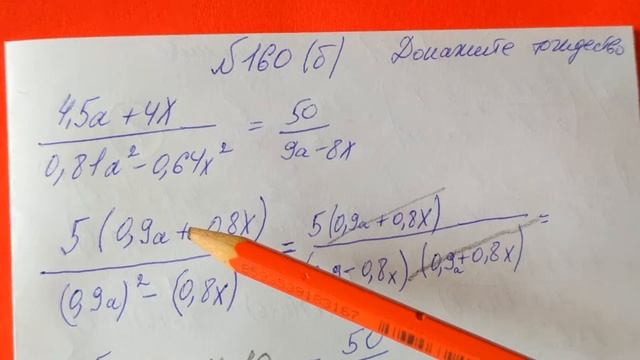 №160 (б) Докажите тождество
(4,5a + 4x)/(0,81a² - 0,64x²) = 50/(9a - 8x)
5(0,9a + 0,8x)/((0,9a)² - (0,8x) = 5(0,9a + 0,8x)/( - 0,8x)(0,9a + 0,8x) =
50